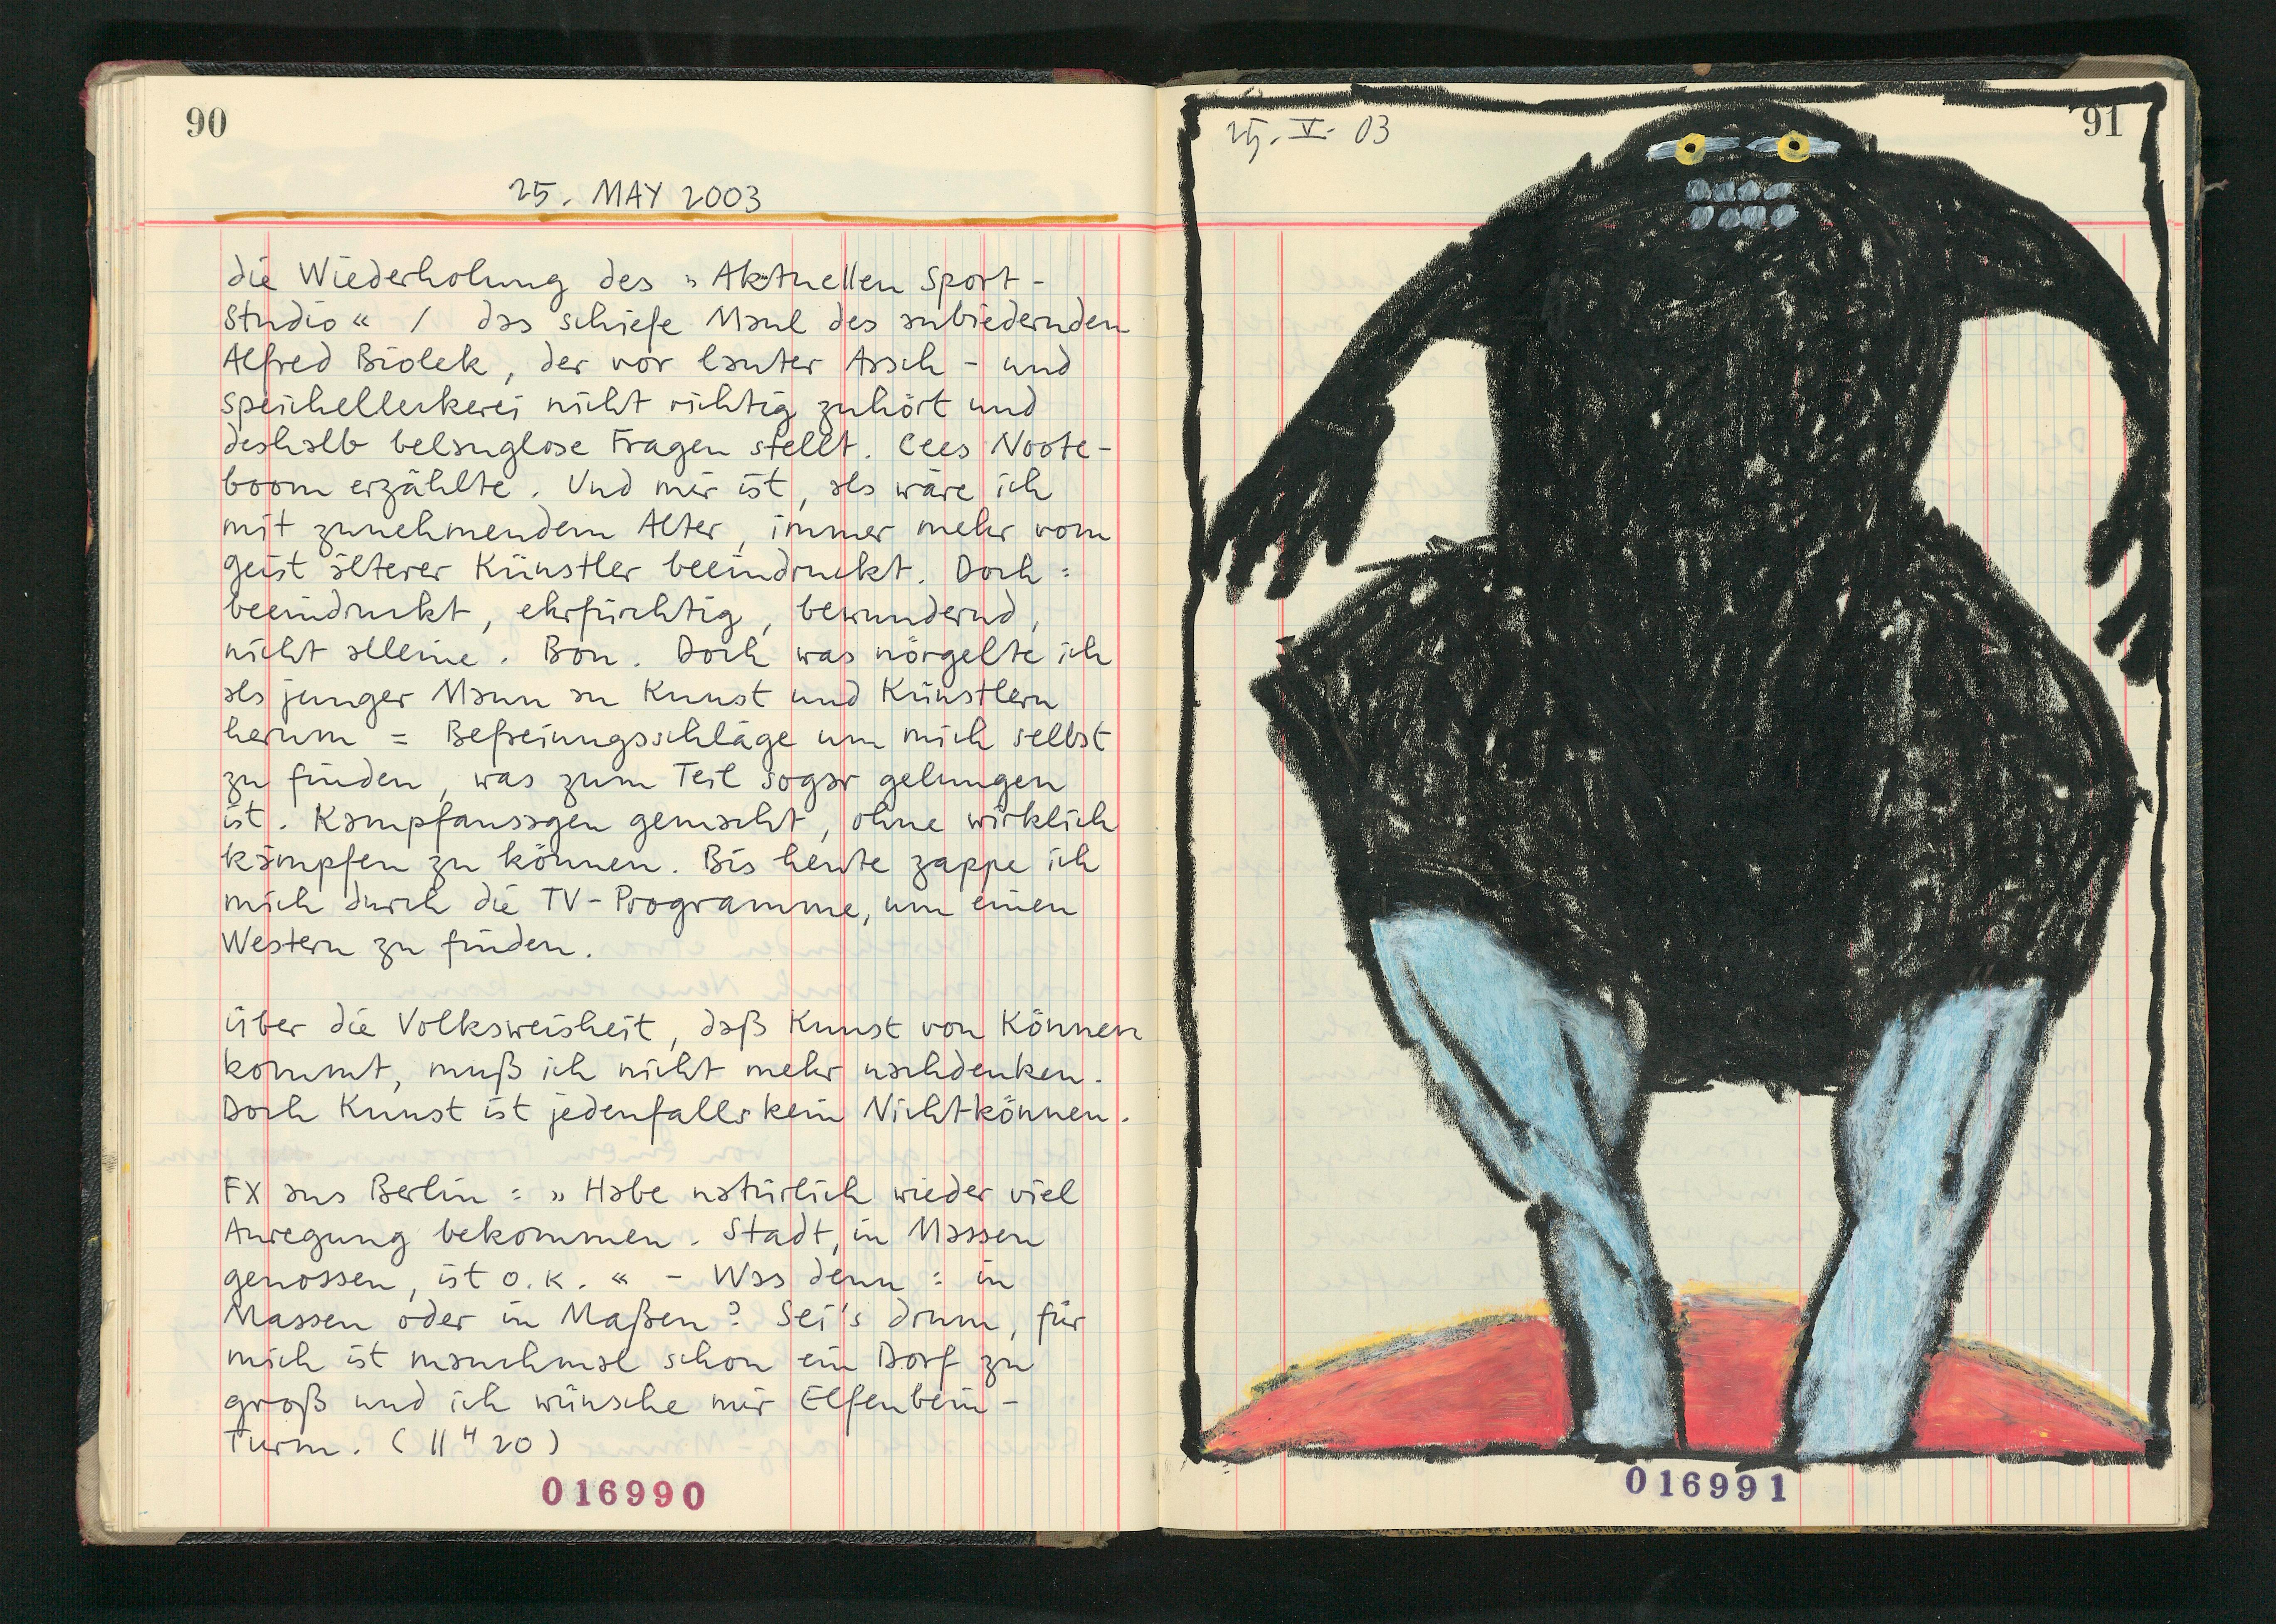 90
25. MAY 2003
die Wiederholung des „Aktuellen Sport-
Studio“ / das schiefe Maul des anbiedernden
Alfred Biolek, der vor lauter Arsch- und
Speichelleckerei nicht richtig zuhört und
deshalb belanglose Fragen stellt. Cees Noote-
boom erzählte. Und mir ist, als wäre ich
mit zunehmendem Alter, immer mehr vom
Geist älterer Künstler beeindruckt. Doch:
beeindruckt, ehrfürchtig, bewundernd,
nicht alleine. Bon. Doch was nörgelte ich
als junger Mann an Kunst und Künstlern
herum = Befreiungsschläge um mich selbst
zu finden, was zum Teil sogar gelungen
ist. Kampfansagen gemacht, ohne wirklich
kämpfen zu können. Bis heute zappe ich
mich durch die TV-Programme, um einen
Western zu finden.
über die Volksweisheit, daß Kunst von Können
kommt, muß ich nicht mehr nachdenken.
Doch Kunst ist jedenfalls kein Nichtkönnen.
FX aus Berlin: „Habe natürlich wieder viel
Anregung bekommen. Stadt, in Massen
genossen, ist o.k.“ - Was denn: in
Massen oder in Maßen? Sei's drum, für
mich ist manchmal schon ein Dorf zu
groß und ich wünsche mir Elfenbein-
Turm. (11ᴴ20)
016990
91
25. V. 03
016991